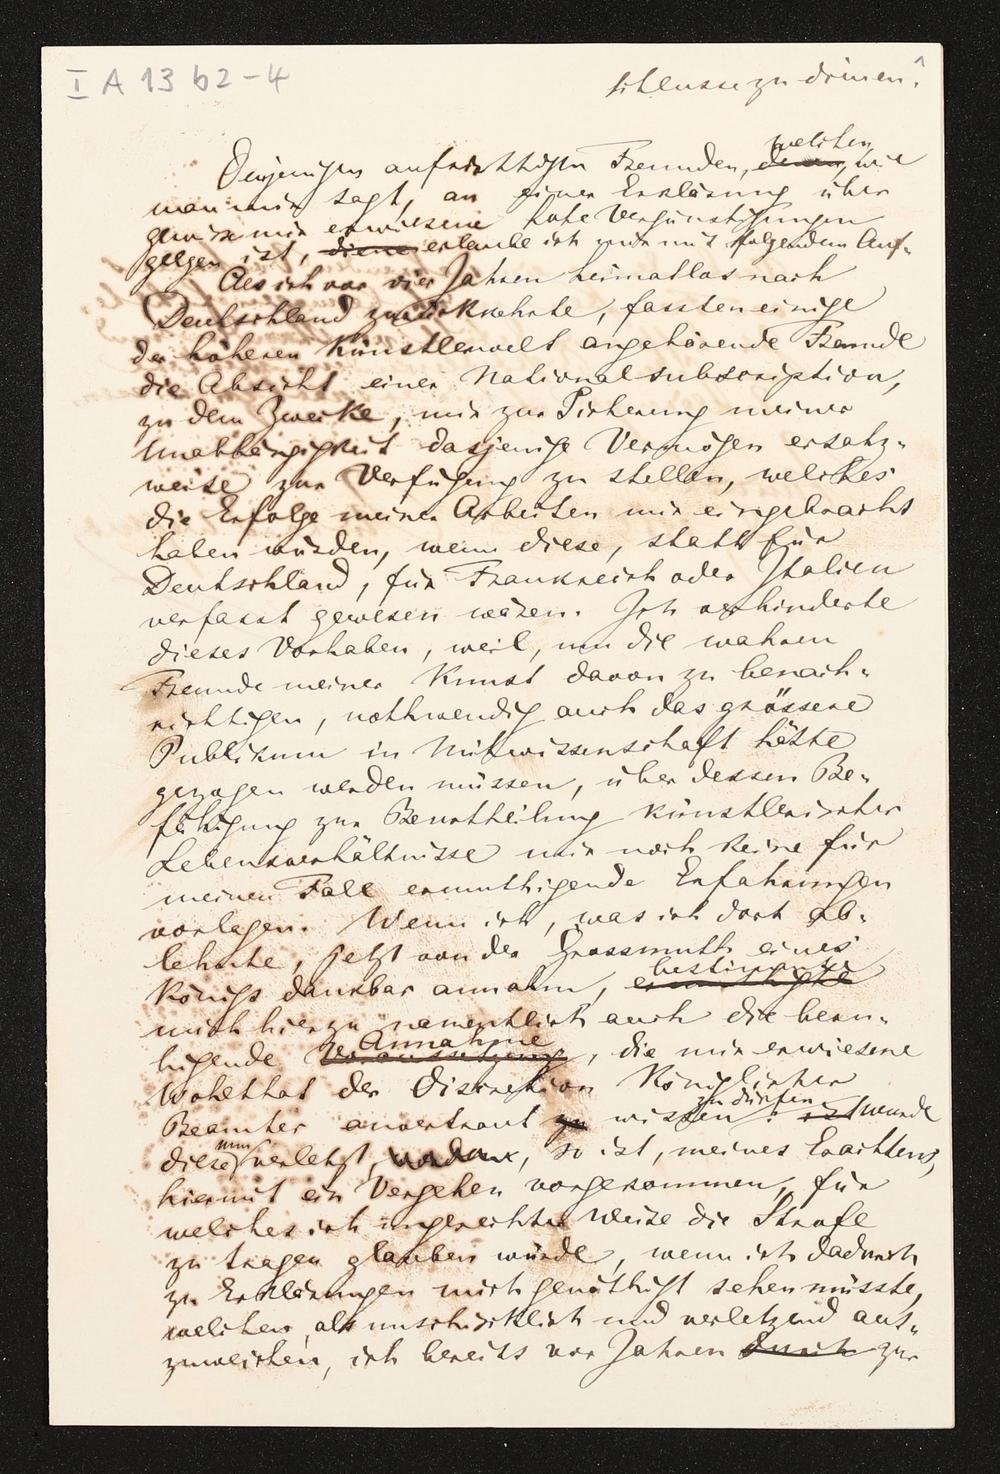 I A 13 b2-4
schlusse zu dringen.
Denjenigen aufrichtigen Freunden, denen, welchen wie
man mir sagt, an einer Erklärung über
gewisse mir erwiesene hohe Vergünstigungen
gelegen ist, diene erlaube ich mir mit folgendem Auf-
Als ich vor vier Jahren heimathlos nach
Deutschland zurückkehrte, fassten einige
der höheren Künstlerwelt angehörende Freunde
die Absicht einer Nationalsubscription,
zu dem Zwecke, mir zur Sicherung meiner
Unabhängigkeit dasjenige Vermögen ersatz-
weise zur Verfügung zu stellen, welches
die Erfolge meiner Arbeiten mir eingebracht
haben würden, wenn diese, statt für
Deutschland, für Frankreich oder Italien
verfasst gewesen wären. Ich verhinderte
dieses Vorhaben, weil, um die wahren
Freunde meiner Kunst davon zu benach-
richtigen, nothwendig auch das grössere
Publikum in Mitwissenschaft hätte
gezogen werden müssen, über dessen Be-
fähigung zur Beurtheilung künstlerischer
Lebensverhältnisse mir noch keine für
meinen Fall ermuthigende Erfahrungen
vorlagen. Wenn ich, was ich dort ab-
lehnte, jetzt von der Grossmuth eines
Königs dankbar annahm, ermuthigte bestimmte
mich hierzu namentlich auch die beru-
higende Voraussetzung Annahme, die mir erwiesene
Wohlthat der Discretion Königlicher
Beamter anvertraut zu wissen zu dürfen: ist wurde
diese nun verletzt, worden, so ist, meines Erachtens,
hiermit ein Vergehen vorgekommen, für
welches ich ungerechter Weise die Strafe
zu tragen glauben würde, wenn ich dadurch
zu Erklärungen mich genöthigt sehen müsste,
welchen, als unschicklich und verletzend aus-
zuweichen, ich bereits vor Jahren durch zur